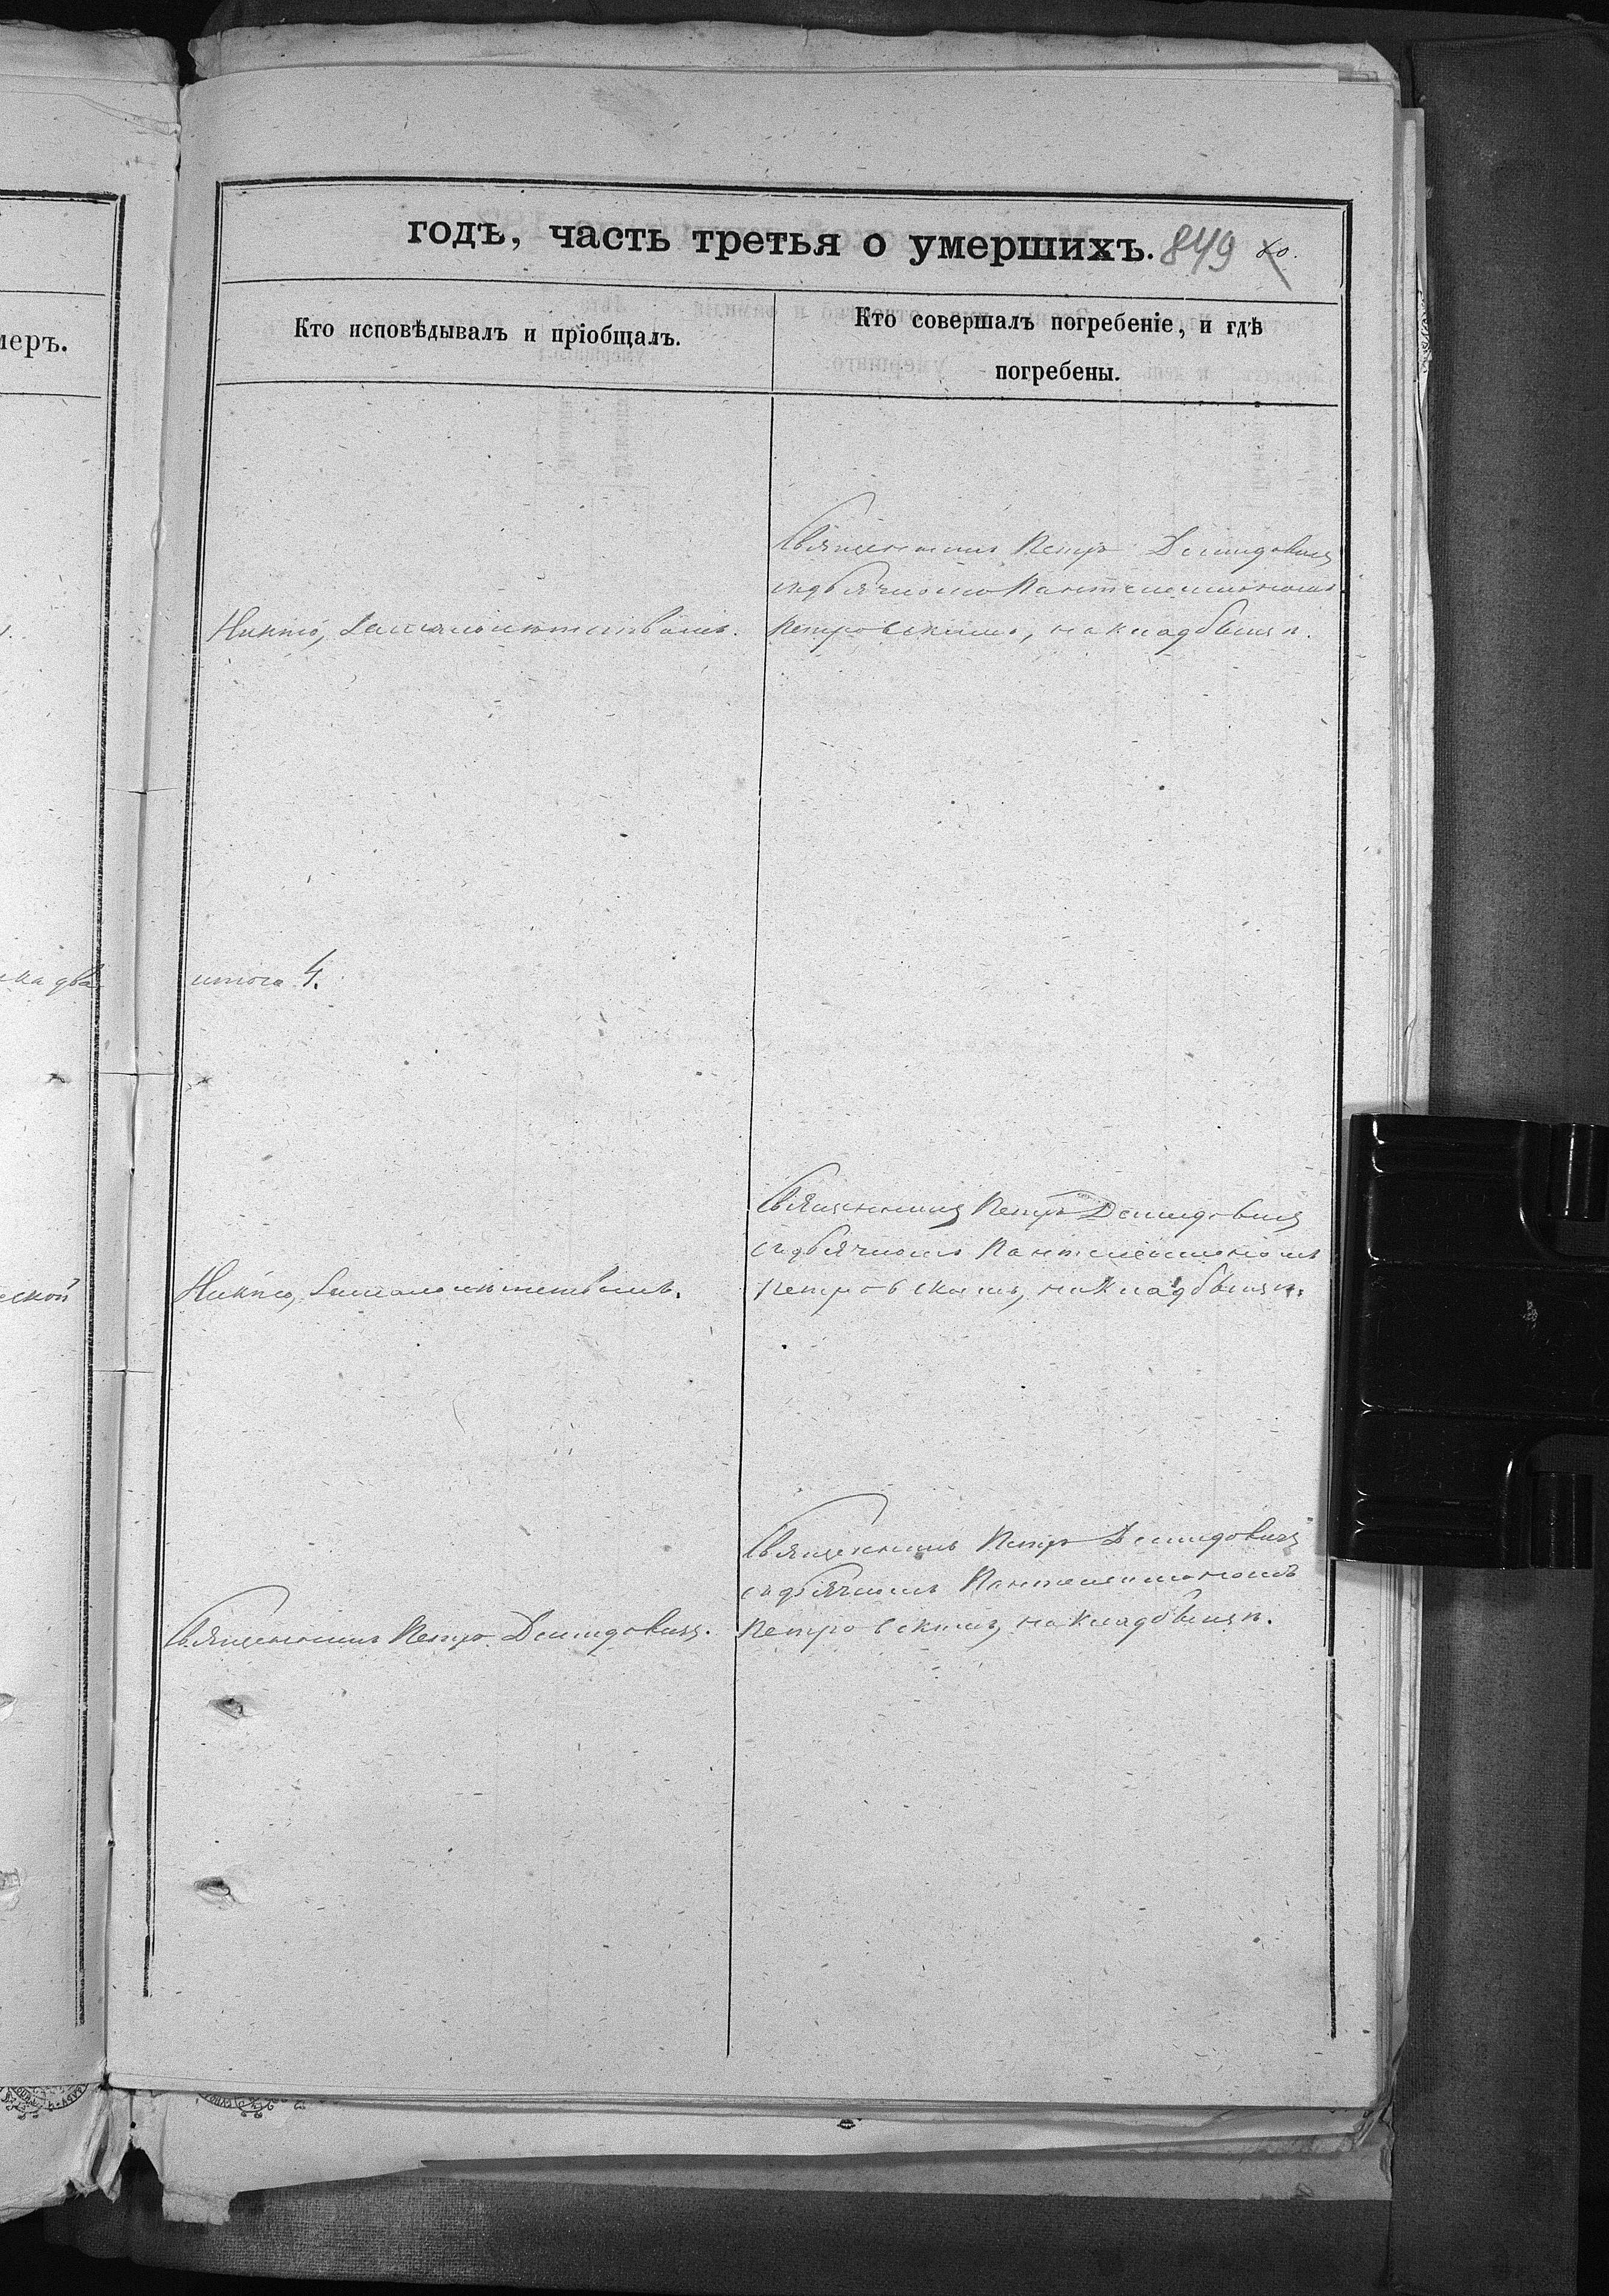 годъ, часть третья о умершихъ. 849
меръ.
Кто исповѣдывалъ и пріобщалъ.
Кто совершалъ погребеніе, и гдѣ
погребены.
Священникъ Петръ Демидовичъ
съ дьячкомъ Пантелеимономъ
Никто, за малолѣтствомъ.
Петровскимъ, на кладбищѣ.
на два
итого 4.
Священникъ Петръ Демидовичъ
съ дьячкомъ Пантелеимономъ
ской
Никто, за малолѣтствомъ.
Петровскимъ, на кладбищѣ.
Священникъ Петръ Демидовичъ
съ дьячкомъ Пантелеимономъ
Священникъ Петръ Демидовичъ.
Петровскимъ, на кладбищѣ.